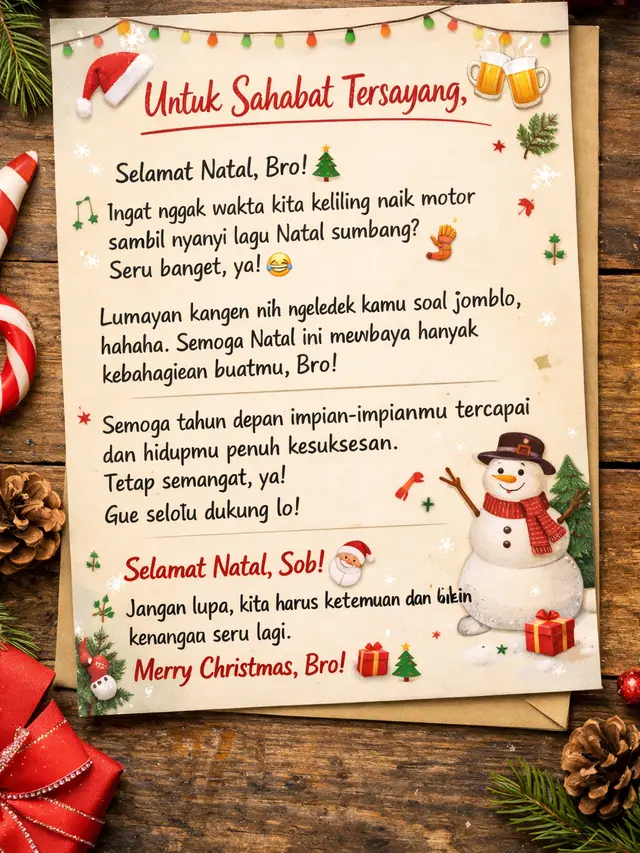 Untuk Sahabat Tersayang,
Selamat Natal, Bro!
Ingat nggak wakta kita keliling naik motor
sambil nyanyi lagu Natal sumbang?
Seru banget, ya!
Lumayan kangen nih ngeledek kamu soal jomblo,
hahaha. Semoga Natal ini mewbaya hanyak
kebahagiean buatmu, Bro!
Semoga tahun depan impian-impianmu tercapai
dan hidupmu penuh kesuksesan.
Tetap semangat, ya!
Gue selotu dukung lo!
Selamat Natal, Sob!
Jangan lupa, kita harus ketemuan dan bikin
kenangan seru lagi.
Merry Christmas, Bro!